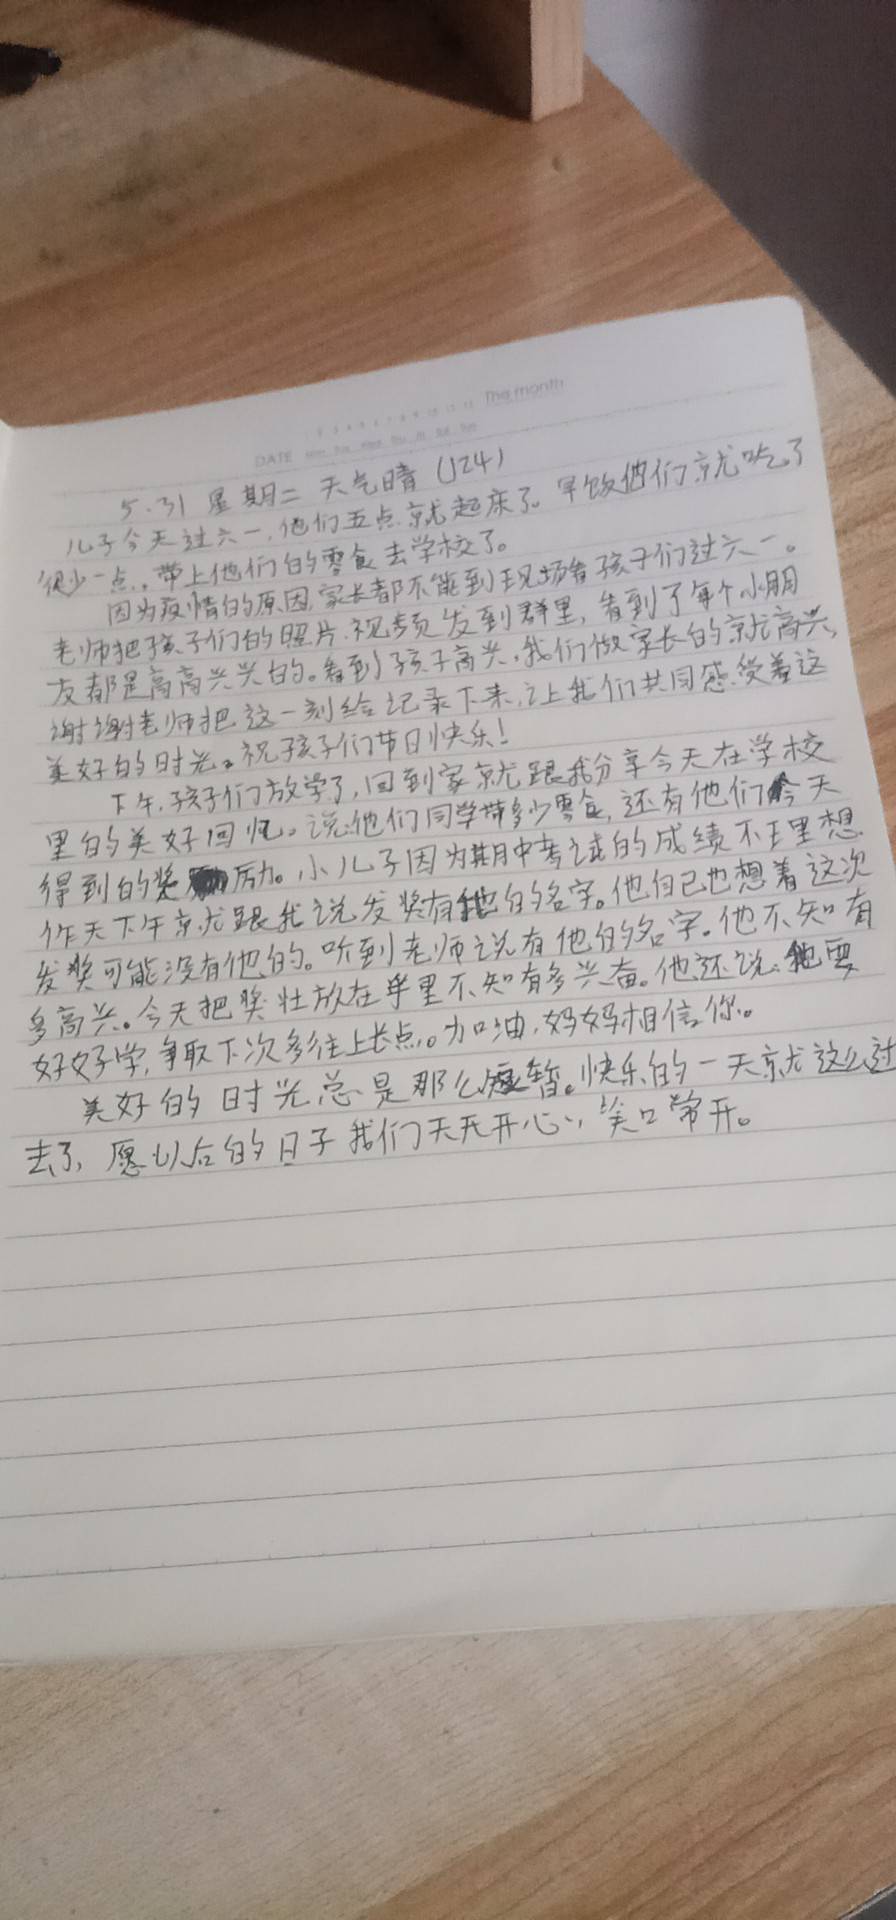 The month
DATE
5.31 星期二 天气晴 (124)
儿子今天过六一,他们五点就起床了。早饭他们就吃了
很少一点。带上他们的零食去学校了。
因为疫情的原因,家长都不能到现场看孩子们过六一。
老师把孩子们的照片.视频发到群里,看到了每个小朋
友都是高高兴兴的。看到孩子高兴,我们做家长的就高兴,
谢谢老师把这一刻给记录下来,让我们共同感受着这
美好的时光。祝孩子们节日快乐!
下午,孩子们放学了,回到家就跟我分享今天在学校
里的美好回忆。说他们同学带多少零食,还有他们今天
得到的奖励。小儿子因为期中考试的成绩不理想
作天下午就跟我说发奖有他的名字。他自己也想着这次
发奖可能没有他的。听到老师说有他的名字.他不知有
多高兴。今天把奖壮放在手里不知有多兴奋。他还说:他要
好好学,争取下次多往上长点。加油,妈妈相信你。
美好的时光总是那么短暂。快乐的一天就这么过
去了,愿以后的日子我们天天开心,笑口常开。